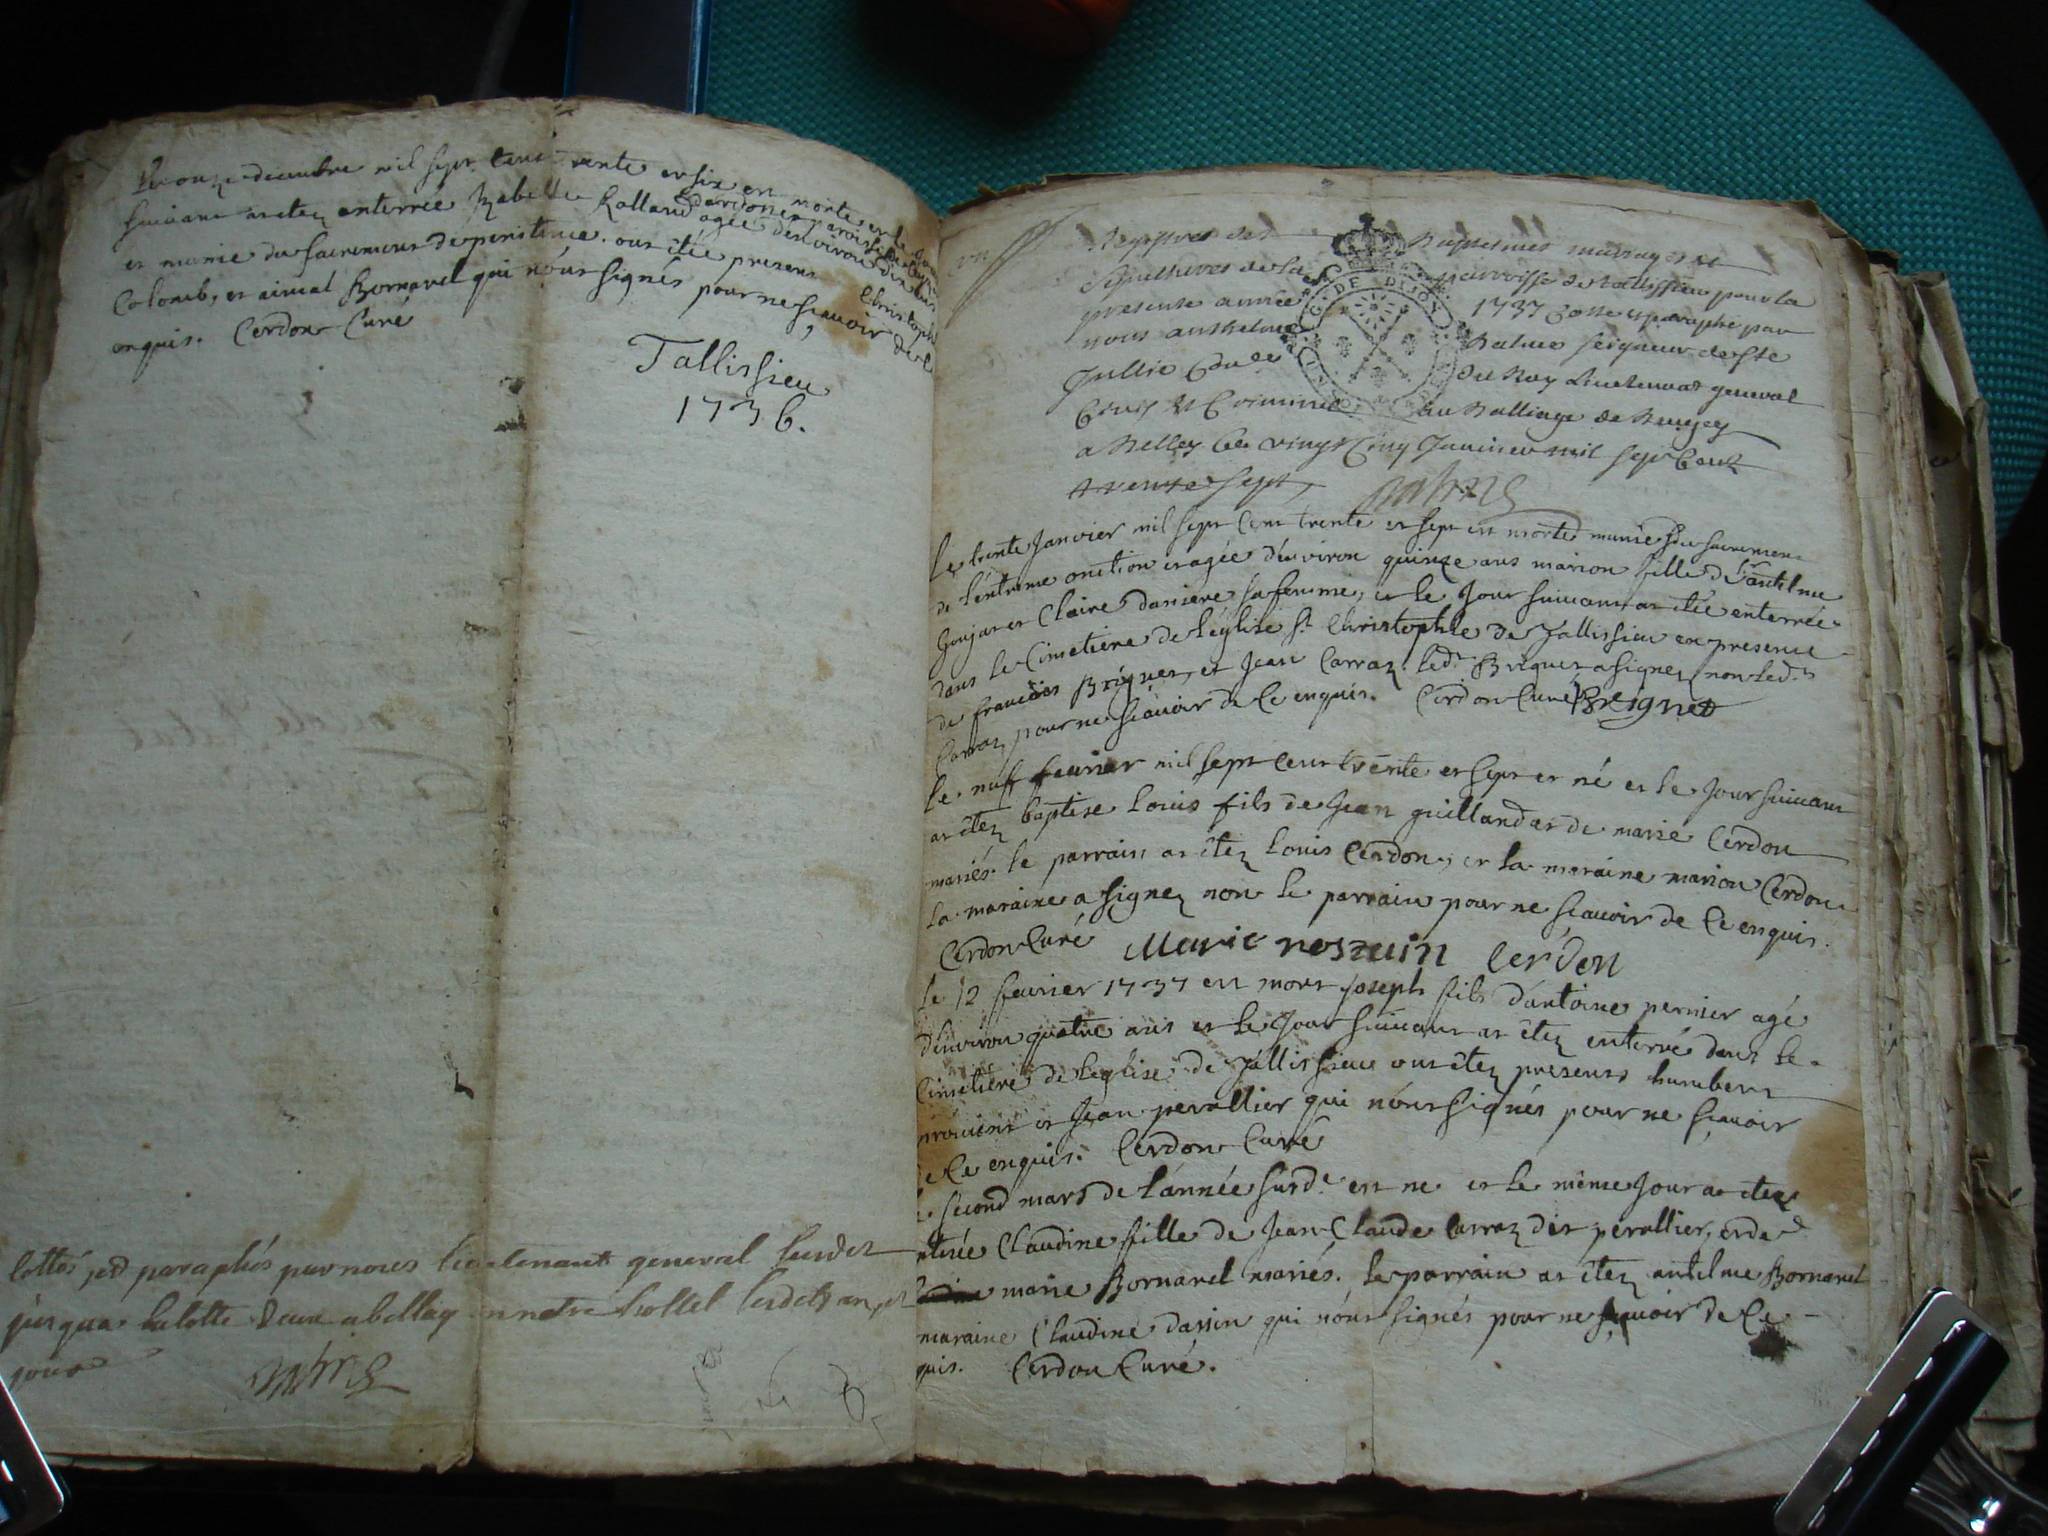 Le onze decembre mil sept cent trente et six est morte et le jour
suivant at etez enterrée Izabelle Rolland
et munie du sacrement de penitence. ont étée present Christophe
Colomb, et aimé Bornarel qui n'ont signés pour ne sçavoir de ce
enquis. Cerdon Curé
Tallissieu
1736.
cottés et paraphés par nous lieutenant general susdit
jusqua la cotte deux a belley en notre hostel lesdits an et
jour
Registres des Baptesmes mariages et
sepultures de la parroisse de Tallissieu pour la
presente année 1737 cotte et paraphé par
nous anthelme Balme seigneur de Ste
Jullie du Roy Lieutenant general
Civil et Criminel au Balliage de Bugey
a Belley ce vingt Cinq Janvier mil sept Cent
trente sept
Le trente Janvier mil sept cent trente et sept est morte munie du sacrement
de l'extreme onction et agée d'environ quinze ans marion fille de Sr antelme
Goujat et Claire daniere sa femme, et le Jour suivant at étée enterrée
dans le Cimetiere de l'église St Christophle de Tallissieu en presence
de francois Briquet, et Jean Carraz. ledt Briquet a signez non ledt
Carraz pour ne sçavoir de ce enquis. Cerdon Curé Breignet
Le neuf fevrier mil sept cent trente et sept et né et le Jour suivant
at étez baptise Louis fils de Jean guilland et de marie Cerdon
mariés. le parrain at étez Louis Cerdon, et la maraine marion Cerdon
la maraine a signez non le parrain pour ne sçavoir de ce enquis.
Cerdon Curé Marie Cerdon
le 12 fevrier 1737 est mort joseph fils d'antoine pernier agé
d'environ quatre ans et le Jour suivant at étez enterré dans le
Cimetiere de l'eglise de Tallissieu ont étez presens humbert
et Jean perallier qui n'ont signés pour ne sçavoir
de ce enquis. Cerdon Curé
second mars de l'année susde est ne et le même Jour at étez
Claudine fille de Jean Claude Carraz dit perallier, et de
marie Bornarel mariés. le parrain at étez antelme Bornarel
maraine Claudine dassin qui n'ont signés pour ne sçavoir de ce
quis. Cerdon Curé.